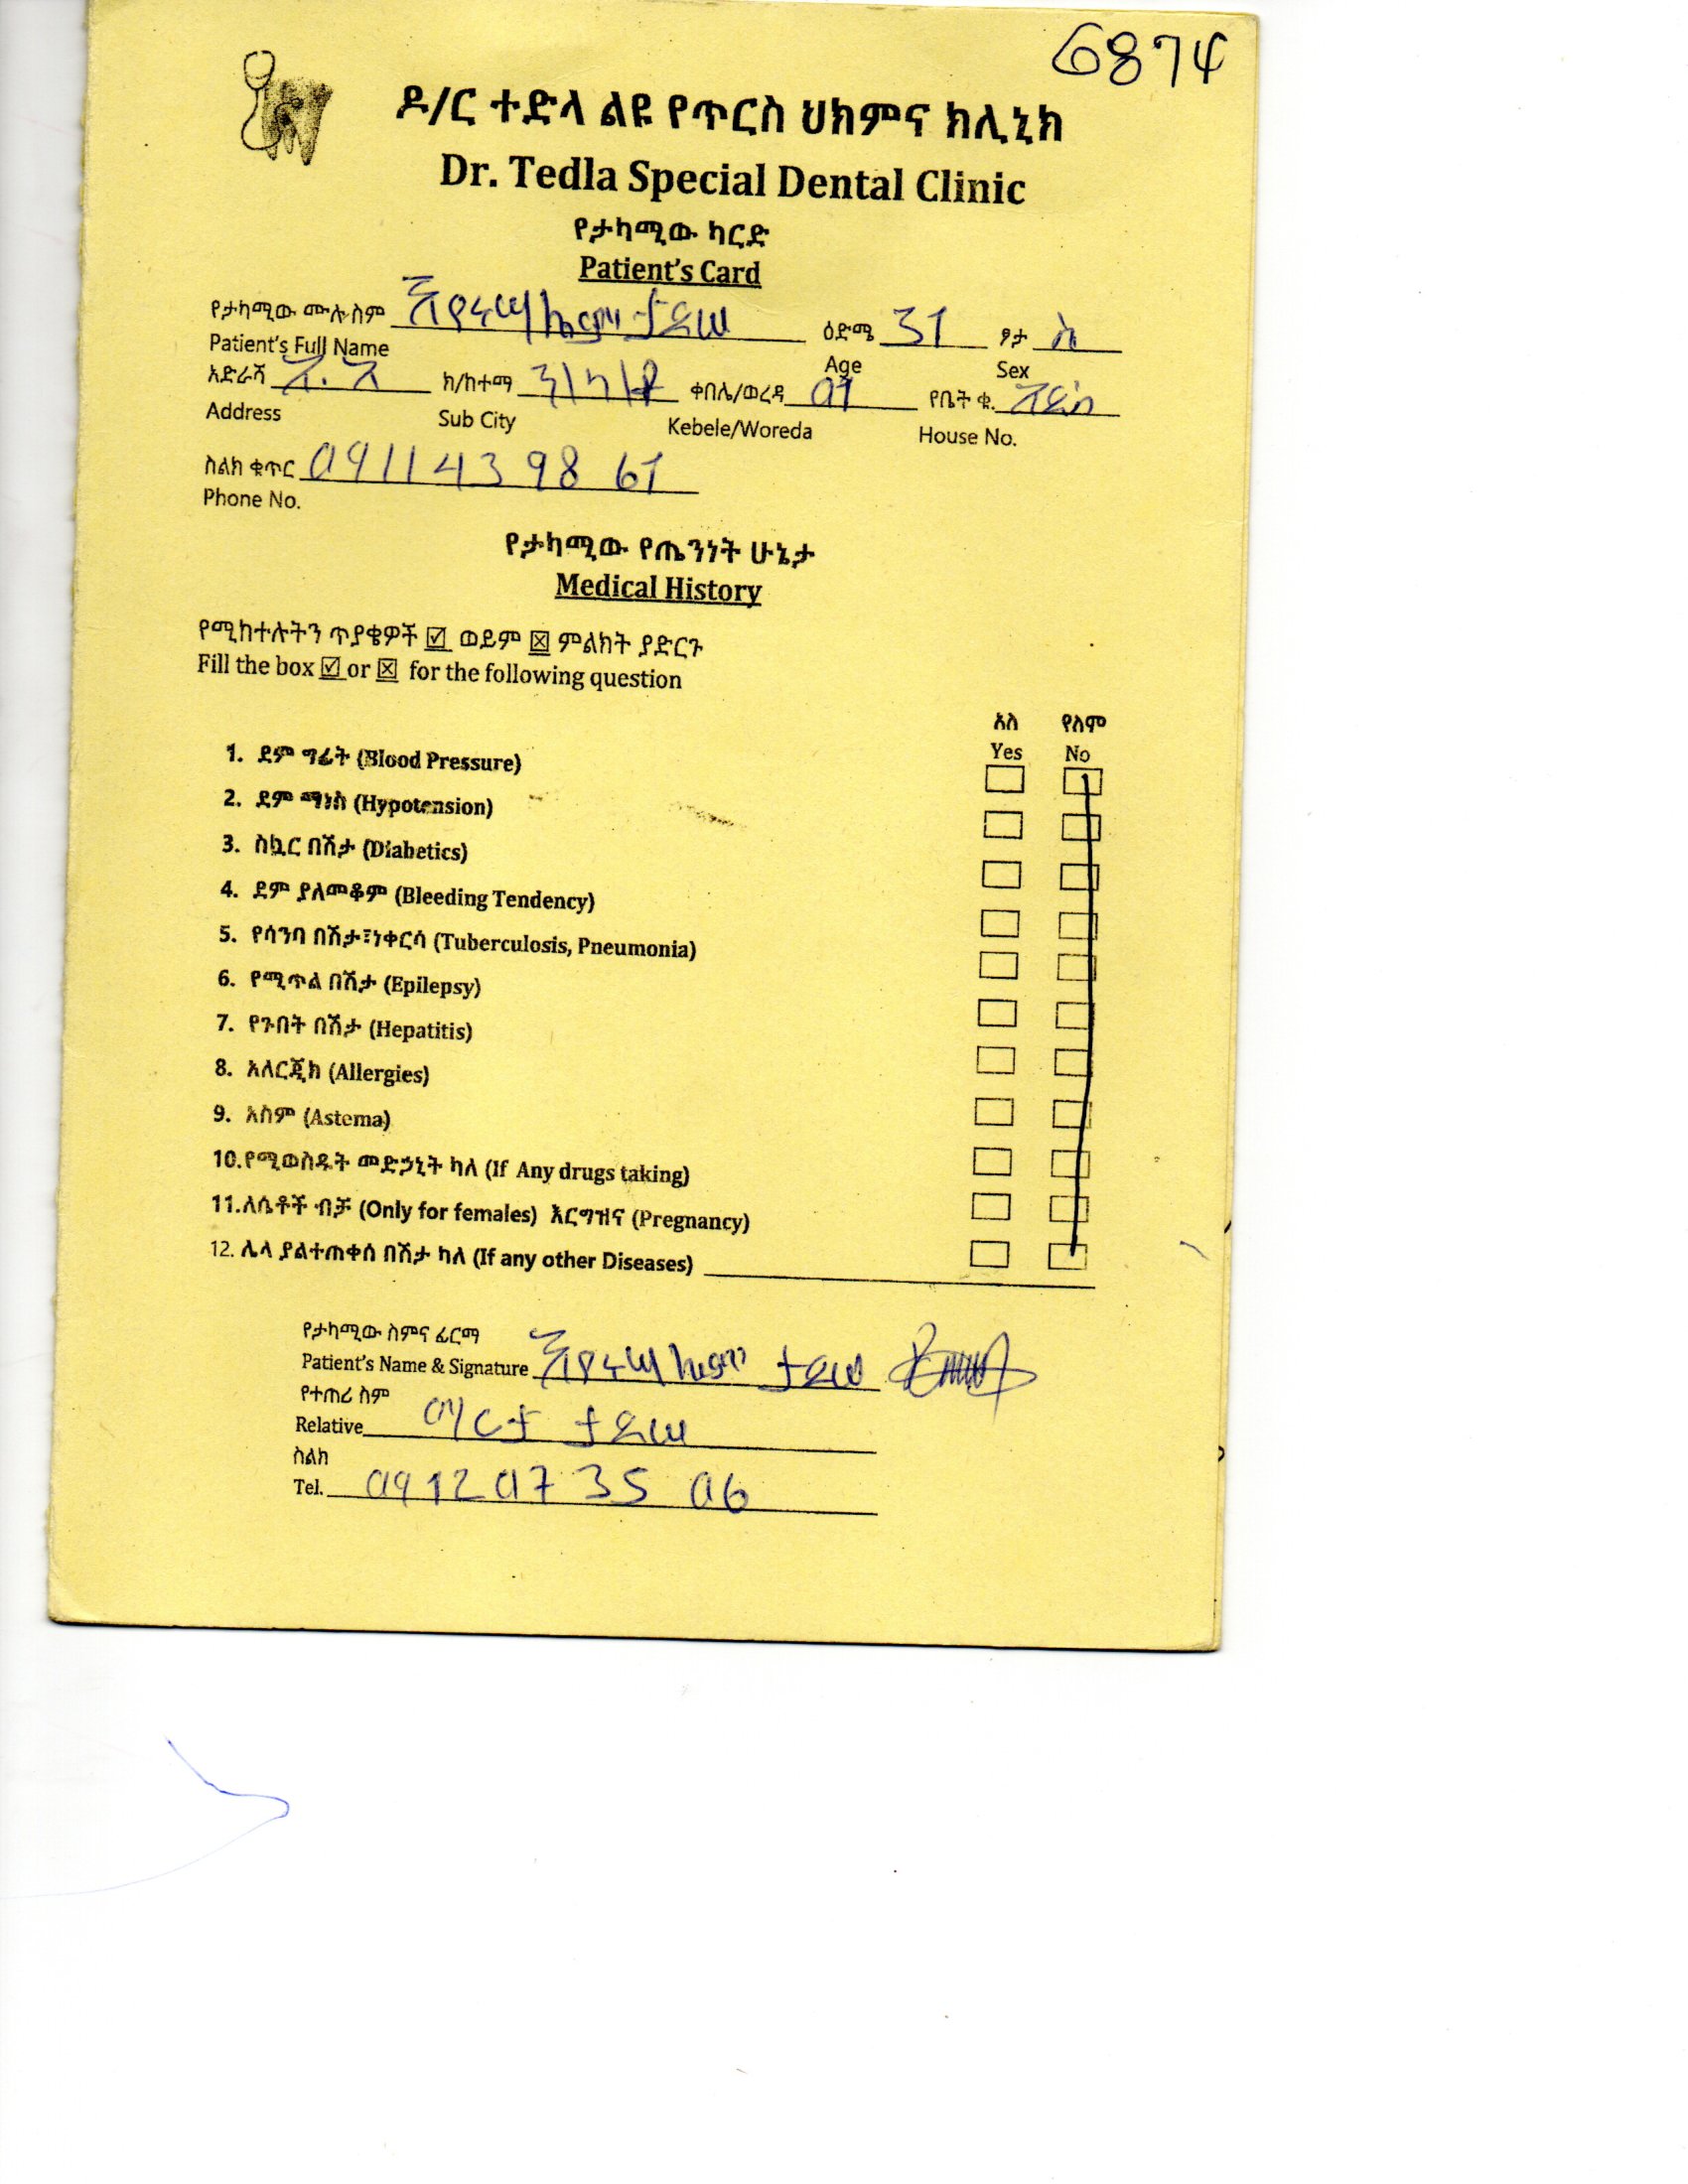 6874
ዶ/ር ተድላ ልዩ የጥርስ ህክምና ክሊኒክ
Dr. Tedla Special Dental Clinic
የታካሚው ካርድ
Patient's Card
የታካሚው ሙሉ ስም ታደሠ ዕድሜ 31 ፆታ
Patient's Full Name Age Sex
አድራሻ አ.አ ክ/ከተማ ቀበሌ/ወረዳ 01 የቤት ቁ. አዲስ
Address Sub City Kebele/Woreda House No.
ስልክ ቁጥር 0911 43 98 61
Phone No.
የታካሚው የጤንነት ሁኔታ
Medical History
የሚከተሉትን ጥያቄዎች ☑ ወይም ☒ ምልክት ያድርጉ
Fill the box ☑ or ☒ for the following question
አለ የለም
Yes No
1. ደም ግፊት (Blood Pressure)
2. ደም ማነስ (Hypotension)
3. ስኳር በሽታ (Diabetics)
4. ደም ያለመቆም (Bleeding Tendency)
5. የሳንባ በሽታ፣ነቀርሳ (Tuberculosis, Pneumonia)
6. የሚጥል በሽታ (Epilepsy)
7. የጉበት በሽታ (Hepatitis)
8. አለርጂክ (Allergies)
9. አስም (Astema)
10.የሚወስዱት መድኃኒት ካለ (If Any drugs taking)
11.ለሴቶች ብቻ (Only for females) እርግዝና (Pregnancy)
12. ሌላ ያልተጠቀሰ በሽታ ካለ (If any other Diseases)
የታካሚው ስምና ፊርማ
Patient's Name & Signature ታደሠ
የተጠሪ ስም
Relative ማርታ ታደሠ
ስልክ
Tel. 0912 07 35 06